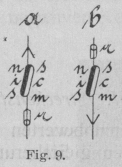 a б
n s n s
i c i c
s m s m
r r
Fig. 9.